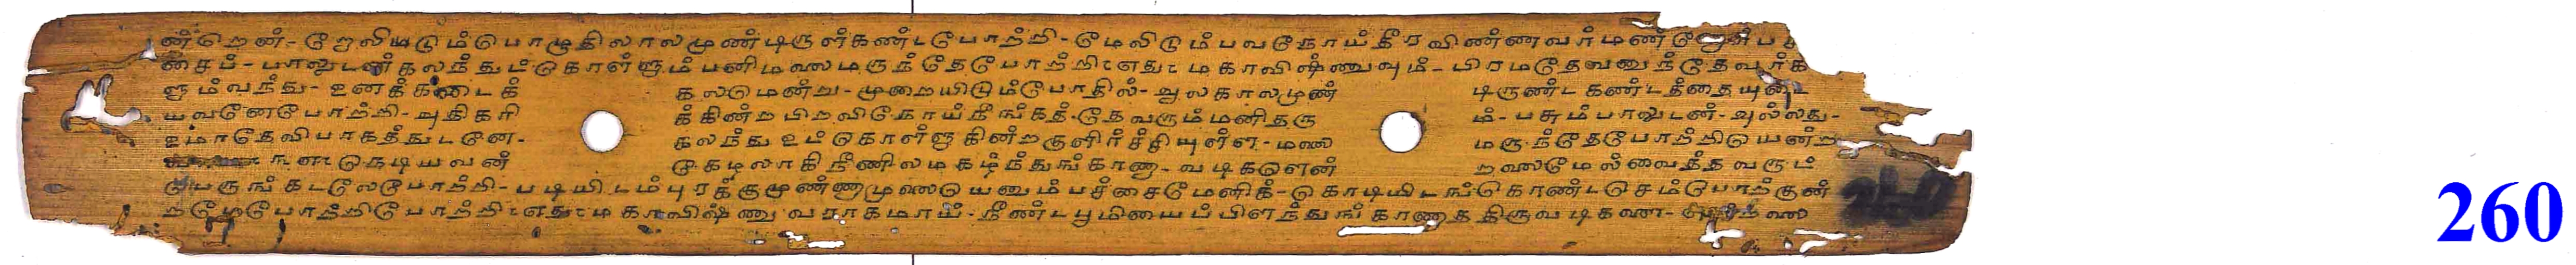 ன்றென் - றேலியடும்பொழுதிலாலமுண்டிருள்கண்டபோற்றி - மேலிடும்பவநோய்தீரவிண்ணவர்மண்
சைப் - பாலுடன்கலந்துட்கொள்ளும்பனிமலைமருந்தேபோற்றி எது மகாவிஷ்ணுவும் - பிரமதேவனுந்தேவர்க
ளும்வந்து - உனக்கடைக் கலமென்று - முறையிடும்போதில் - ஆலகாலமுண் டிருண்ட கண்டத்தையுடை
யவனேபோற்றி - அதிகரி க்கின்றபிறவிநோய்நீங்கத் தேவரும்மனிதரு ம் - பசும்பாலுடன் - அல்லது -
உமாதேவிபாகத்துடனே - கலந்து உட்கொள்ளுகின்றகுளிர்ச்சியுள்ள - மலை மருந்தேபோற்றியென்ற
நெடியவன் கேழலாகிநீணிலமகழ்ந்துங்காணா - வடிகளென் றலைமேல்வைத்தவரும்
பெருங்கடலேபோற்றி - படியிடம்புரக்குமுண்ணாமுலையுயனும்பச்சைமேனிக் - கொடியிடங்கொண்டசெம்பொற்குன்
றமேபோற்றிபோற்றி எது மகாவிஷ்ணு வராகமாய் - நீண்டபூமியைப்பிளந்துங்காணாததிருவடிகளை -
260